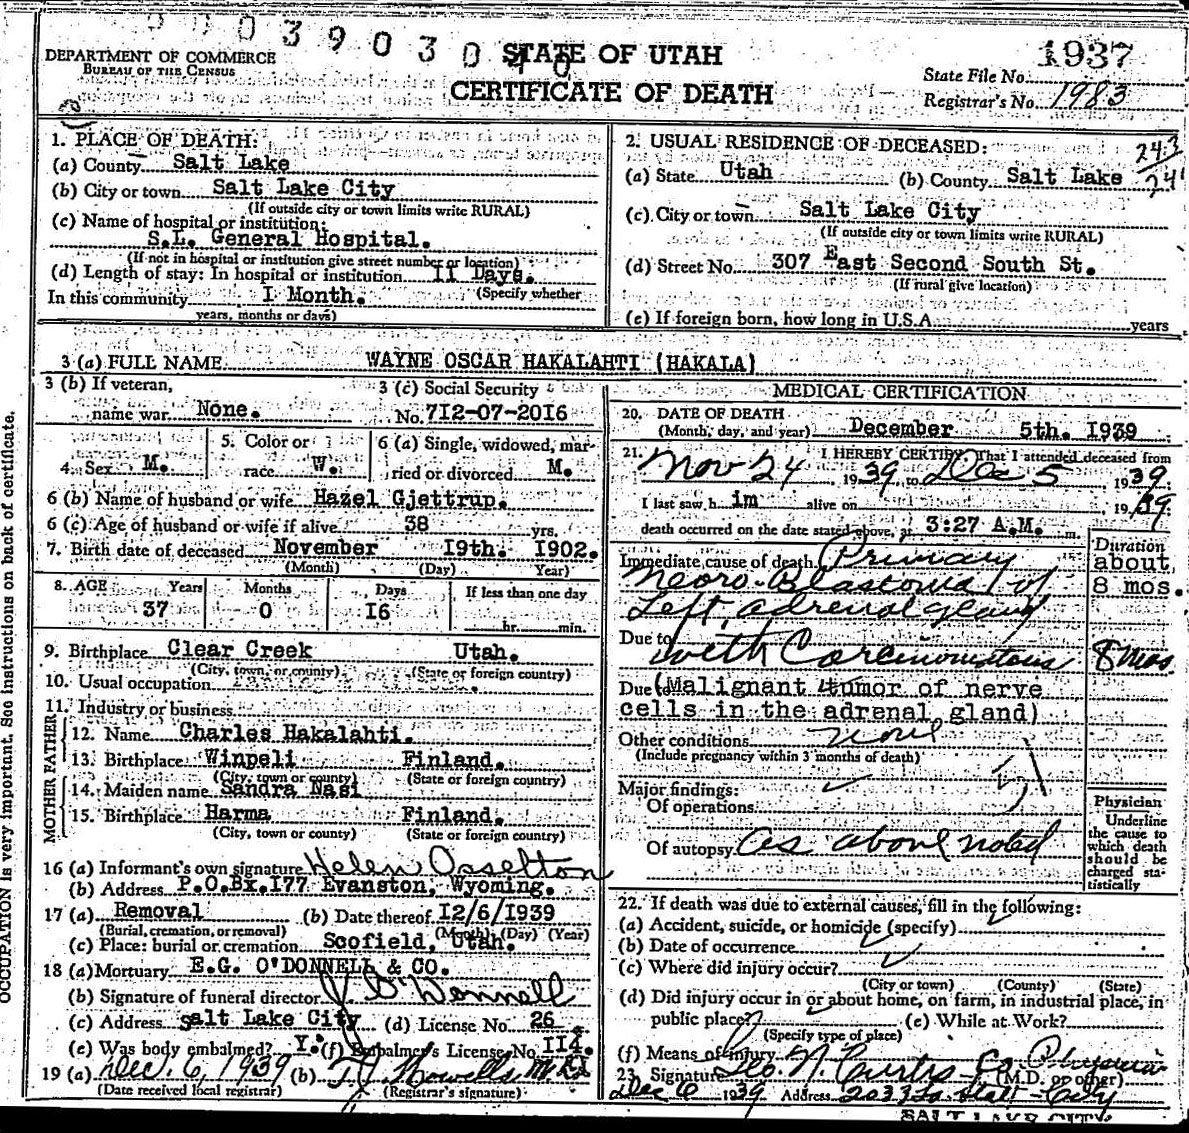 0 0 0 3 9 0 3 0 4 0
DEPARTMENT OF COMMERCE
BUREAU OF THE CENSUS
STATE OF UTAH
CERTIFICATE OF DEATH
1937
State File No.
Registrar's No. 1983
1. PLACE OF DEATH:
(a) County Salt Lake
(b) City or town Salt Lake City
(If outside city or town limits write RURAL)
(c) Name of hospital or institution:
S.L. General Hospital.
(If not in hospital or institution give street number or location)
(d) Length of stay: In hospital or institution 11 Days.
(Specify whether
In this community I Month.
years, months or days)
2. USUAL RESIDENCE OF DECEASED:
243
24
(a) State Utah (b) County Salt Lake
(c) City or town Salt Lake City
(If outside city or town limits write RURAL)
(d) Street No. 307 East Second South St.
(If rural give location)
(e) If foreign born, how long in U.S.A. years
3 (a) FULL NAME WAYNE OSCAR HAKALAHTI (HAKALA)
3 (b) If veteran,
name war None.
3 (c) Social Security
No. 7I2-07-20I6
4. Sex M.
5. Color or
race W.
6 (a) Single, widowed, mar-
ried or divorced M.
6 (b) Name of husband or wife Hazel Gjettrup.
6 (c) Age of husband or wife if alive 38 yrs.
7. Birth date of deceased November I9th. I902.
(Month) (Day) Year)
8. AGE Years Months Days If less than one day
37 0 I6
hr. min.
9. Birthplace Clear Creek Utah.
(City, town, or county) (State or foreign country)
10. Usual occupation
11. Industry or business
FATHER
12. Name Charles Hakalahti.
13. Birthplace Winpeli Finland.
(City, town or county) (State or foreign country)
MOTHER
14. Maiden name Sandra Nasi
15. Birthplace Harma Finland.
(City, town or county) (State or foreign country)
16 (a) Informant's own signature Helen Osselton
(b) Address P.O.Bx.I77 Evanston, Wyoming.
17 (a) Removal (b) Date thereof I2/6/I939
(Burial, cremation, or removal) (Month) (Day) (Year)
(c) Place: burial or cremation Scofield, Utah.
18 (a) Mortuary E.G. O'DONNELL & CO.
(b) Signature of funeral director O'Donnell
(c) Address Salt Lake City (d) License No. 26
(e) Was body embalmed? Y. (f) Embalmer's License No. II4.
19 (a) Dec. 6, 1939 (b) Howells
(Date received local registrar) (Registrar's signature)
MEDICAL CERTIFICATION
20. DATE OF DEATH
(Month, day, and year) December 5th. I939
21. I HEREBY CERTIFY, That I attended deceased from
Nov 24 1939 to Dec 5 1939
I last saw h im alive on 19 39
death occurred on the date stated above, at 3:27 A.M. m.
Duration
Immediate cause of death Primary
about
Neoro-Blastoma of
8 mos.
Left adrenal gland
Due to with Carcinomatous 8 mos
Due to (Malignant tumor of nerve
cells in the adrenal gland)
Other conditions none
(Include pregnancy within 3 months of death)
Major findings:
Of operations
Of autopsy as above noted
Physician
Underline
the cause to
which death
should be
charged sta-
tistically
22. If death was due to external causes, fill in the following:
(a) Accident, suicide, or homicide (specify)
(b) Date of occurrence
(c) Where did injury occur?
(City or town) (County) (State)
(d) Did injury occur in or about home, on farm, in industrial place, in
public place? (e) While at Work?
(Specify type of place)
(f) Means of injury
23. Signature Leo. N. Curtis Co Physician
(M.D. or other)
Dec 6 1939 Address 2033 So State City
SALT LAKE CITY
OCCUPATION is very important. See instructions on back of certificate.